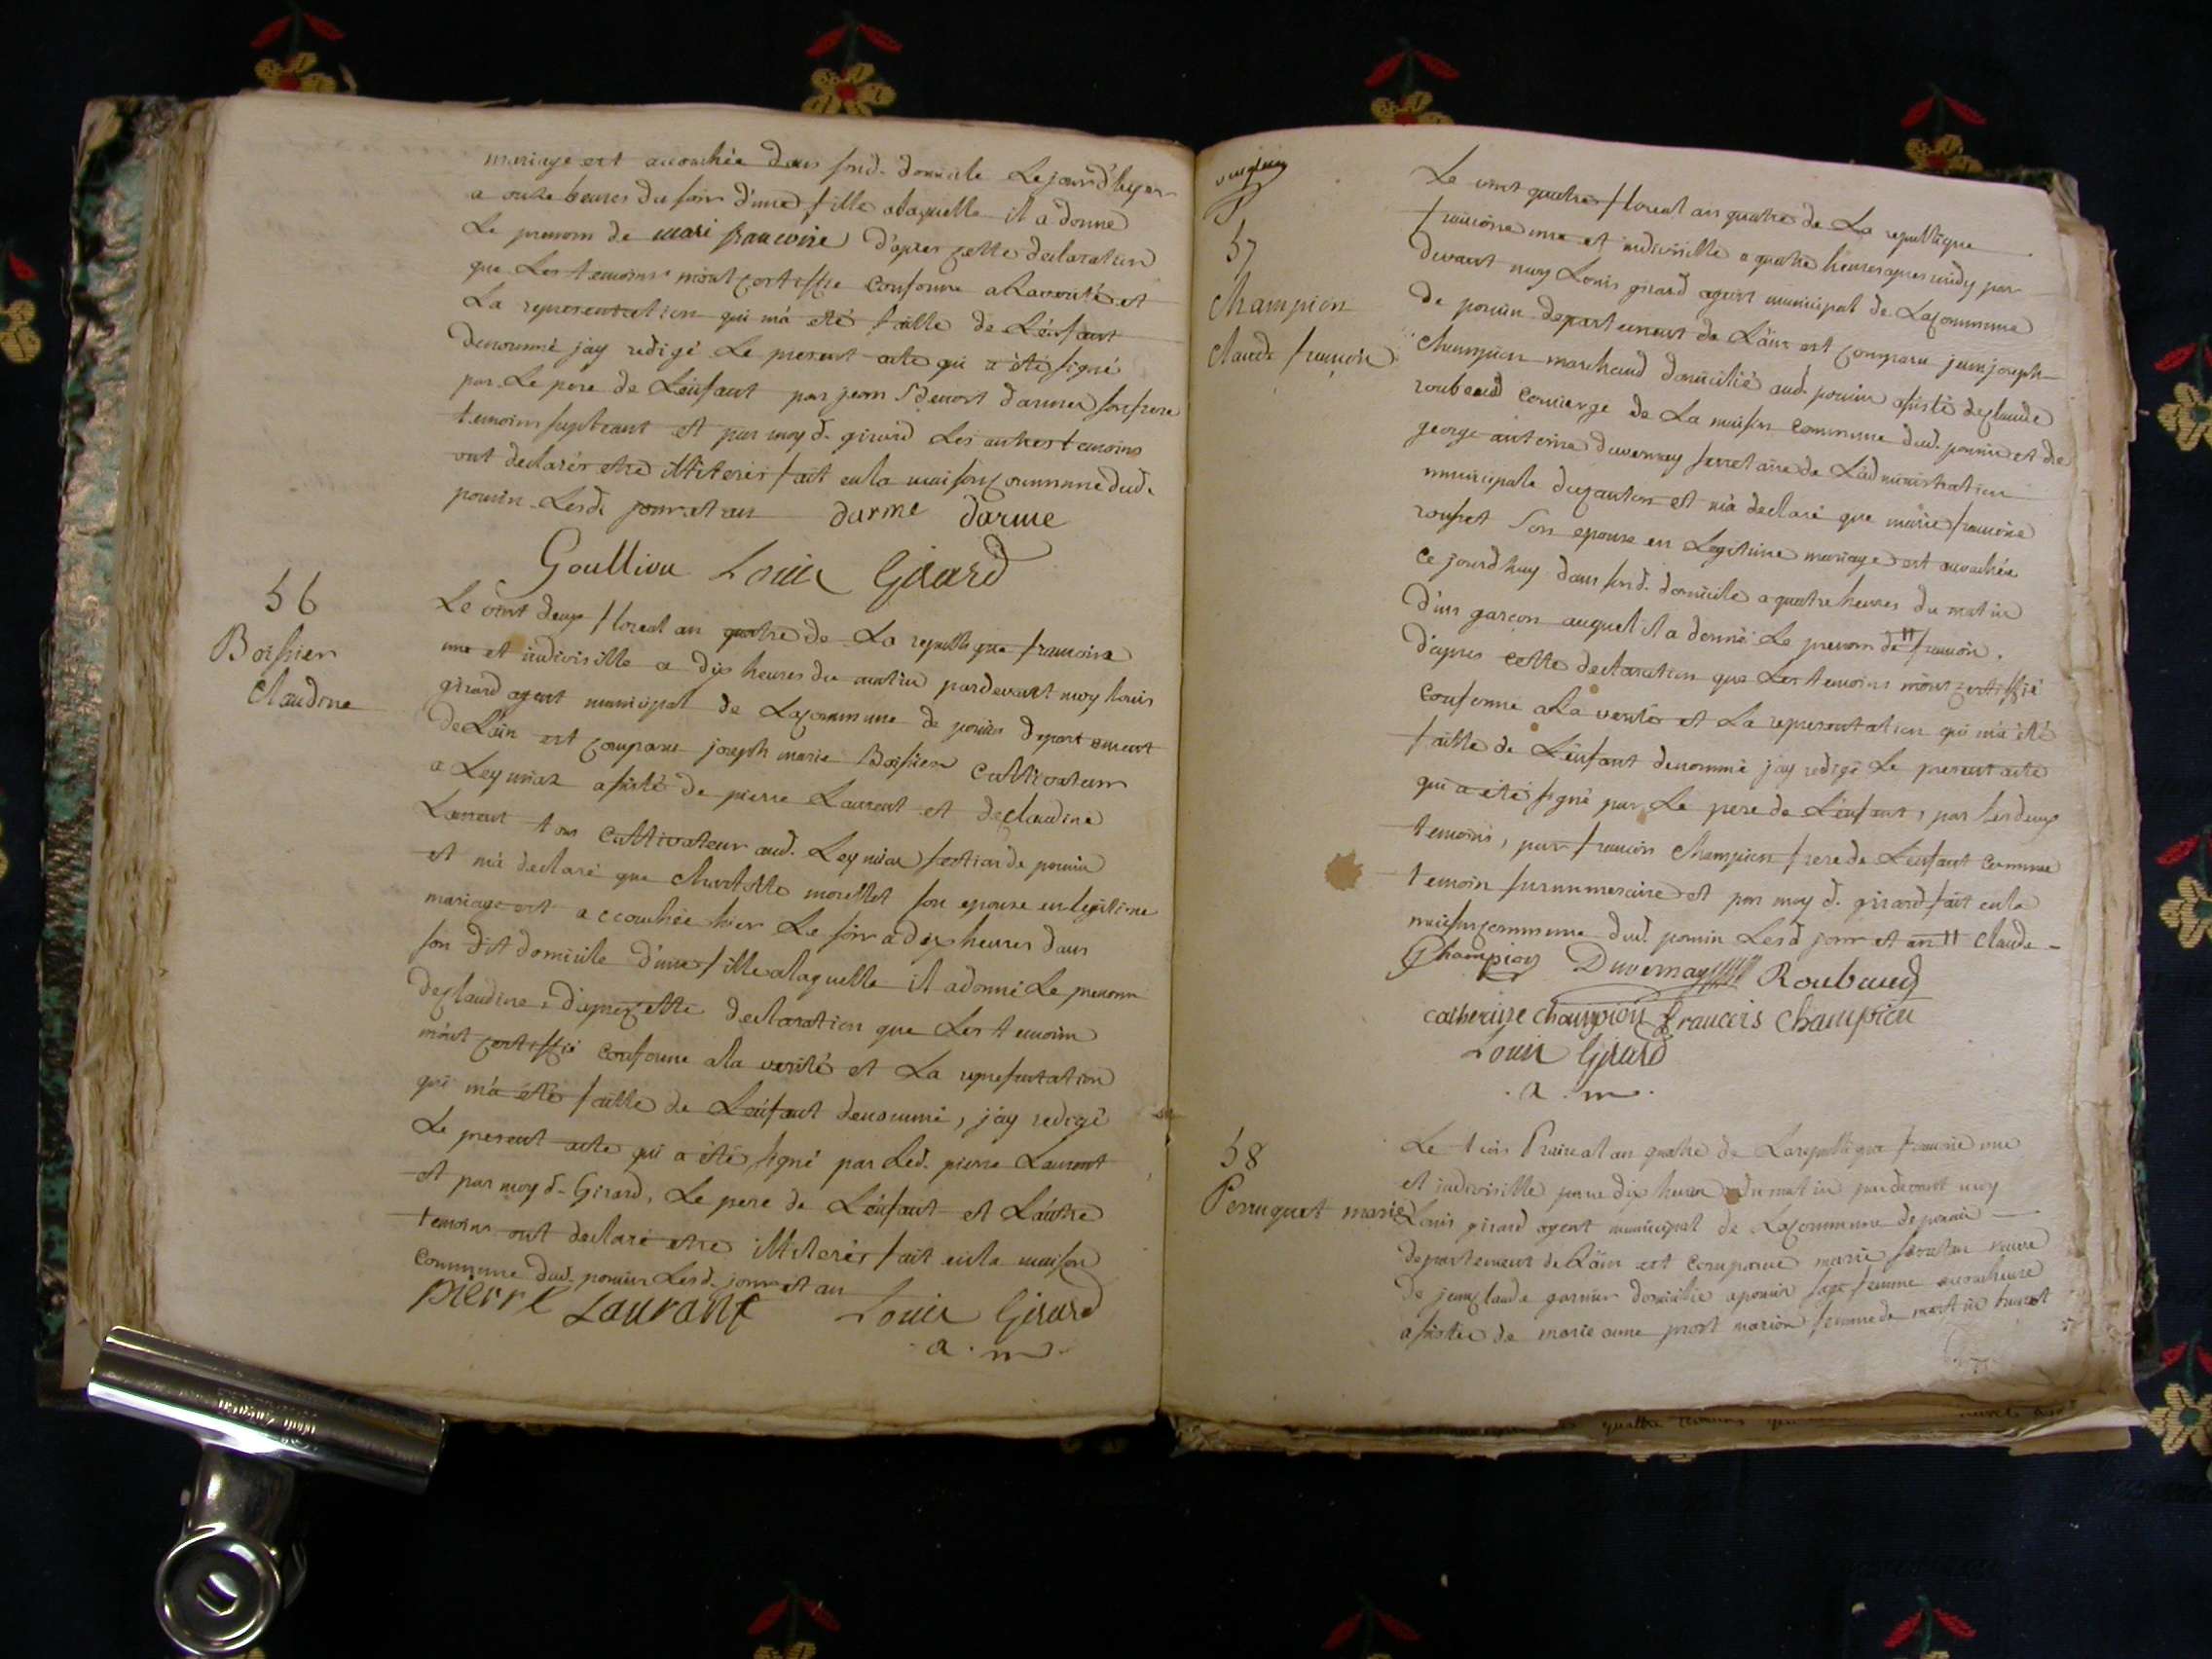 mariage est accouchée dans sond. domicile Le jour d'hyer
a onze heures du soir d'une fille alaquelle il a donné
Le prenom de mari francoise d'apres cette declaration
que Les temoins m'ont certiffie conforme a La verité et
La representation qui m'a eté faitte de L'enfant
denommé jay redigé Le present acte qui a eté signé
par Le pere de L'enfant par jean darme son frere
temoins supleant et par moy d. girard Les autres temoins
ont declarés etre illiterés fait en la maison commune dud.
poncin Lesd. jour et an darme darme
Goullion Louis Girard
56
Boissier
Claudine
Le vint deux floreal an quatre de La republique francoise
une et indivisille a dix heures du matin pardevant moy Louis
girard agent municipal de La commune de poncin departement
de L'ain est comparu joseph marie Boissier cultivateur
a Leymiat assisté de pierre Laurent et de claudine
Laurent tous cultivateur aud. Leymiat section de poncin
et m'a declaré que morettet son epouse en legitime
mariage est accouchée hier Le soir a dix heures dans
son dit domicile d'une fille alaquelle il a donné Le prenom
de claudine, d'apres cette declaration que Les temoins
m'ont certiffié conforme a la verité et La representation
qui m'a eté faitte de L'enfant denommé, j'ay redigé
Le present acte qui a eté signé par Led. pierre Laurent
et par moy d. Girard, Le pere de L'enfant et L'autre
temoins ont declaré etre illiterés fait en la maison
commune dud. poncin Lesd. jour et an
pierre Laurant Louis Girard
a. m.
57
Champion
claude françois
Le vint quatre floreal an quatre de La republique
francoise une et indivisille a quatre heures apres midy par
devant moy Louis girard agent municipal de La commune
de poncin departement de L'ain est comparu jean joseph
Champion marchand domicilié aud. poncin assisté de claude
roubaud concierge de La maison commune dud. poncin et de
george antoine duvernay secretaire de L'administration
municipale du canton et m'a declaré que marie francoise
rousset son epouse en Legitime mariage est accouchée
ce jourd'huy dans sond. domicile a quatre heures du matin
d'un garcon auquel il a donné Le prenom de // francois.
d'apres cette declaration que Les temoins m'ont certiffié
conforme a La verité et La representation qui m'a été
faitte de L'enfant denommé jay redigé Le present acte
qui a eté signé par Le pere de L'enfant, par les deux
temoins, par francois Champion frere de L'enfant comme
temoin surnumeraire et par moy d. girard fait en la
maison commune dud. poncin Lesd jour et an // claude -
Champion Duvernay Roubaud
catherine champion francois champion
Louis Girard
. a . m .
58
Perruquet marie
Le trois Prairial an quatre de La republique francoise une
et indivisille pour dix heures du matin pardevant moy
Louis girard agent municipal de La commune de poncin
departement de L'ain est comparue marie veuve
de jean claude garnier domicilie a poncin sage femme accoucheuse
assistée de marie anne prost marion femme de martin